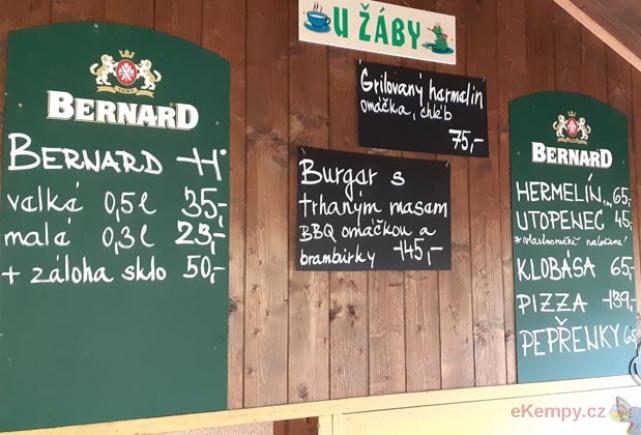 U ŽÁBY
BERNARD
BERNARD 11°
valká 0,5l 35,-
malá 0,3l 23,-
+ záloha sklo 50,-
Grilovaný harmalin
omáčka, chláb
75,-
Burgar s
trhaným masam
BBQ omáčkou a
brambůrky 145,-
BERNARD
HERMELÍN 65,-
UTOPENEC 45,-
KLOBÁSA 65,-
PIZZA 139,-
PEPŘENKY 65
eKempy.cz